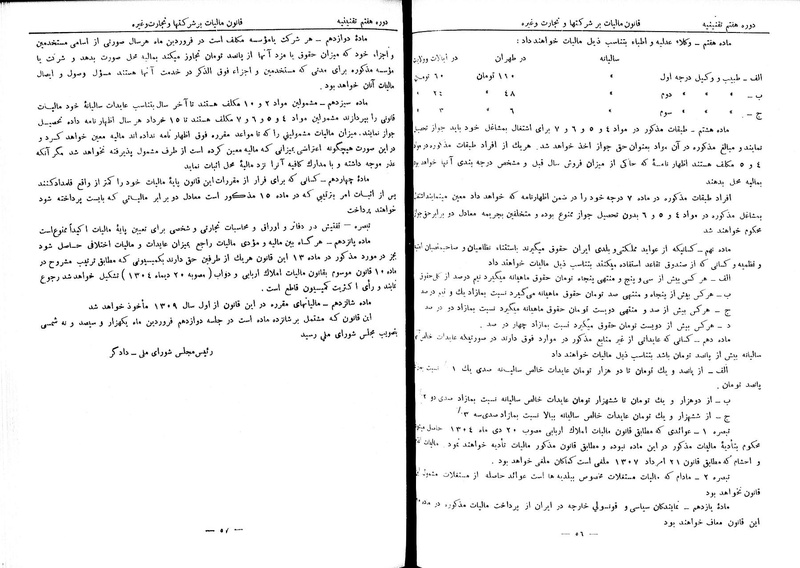 دوره هفتم تقنینیه
قانون مالیات بر شرکتها و تجارت وغیره
ماده هفتم – وکلاء عدلیه و اطباء بتناسب ذیل مالیات خواهند داد :
سالیانه در طهران در ایالات وولایات
الف – طبیب و وکیل درجه اول » ۱۱۰ تومان ۶۰ تومان
ب – » » » دوم » ۴۸ » ۲۴ »
ج – » » » سوم » ۶ » ۳ »
ماده هشتم – طبقات مذکور در مواد ۴ و ۵ و ۶ و ۷ برای اشتغال بمشاغل خود باید جواز تحصیل
نمایند و مبالغ مذکور در آن مواد بعنوان حق جواز اخذ خواهد شد. هریك از افراد طبقات مذکوره در مواد
۴ و ۵ مکلف هستند اظهار نامهٔ که حاکی از میزان فروش سال قبل و مشخص درجه بندی آنها خواهد بود
بمالیه محل بدهند
افراد طبقات مذکوره در ماده ۷ درجه خود را در ضمن اظهارنامه که خواهد داد معین مینمایند اشتغال
بمشاغل مذکوره در مواد ۴ و ۵ و ۶ بدون تحصیل جواز ممنوع بوده و متخلفین بجریمه معادل دو برابر حق جواز
محکوم خواهند شد
ماده نهم – کسانیکه از عواید مملکتی و بلدی ایران حقوق میگیرند باستثناء نظامیان و صاحبمنصبان امنیه
و نظمیه و کسانی که از صندوق تقاعد استفاده میکنند بتناسب ذیل مالیات خواهند داد
الف – هر کسی بیش از سی و پنج و منتهی پنجاه تومان حقوق ماهیانه میگیرد نیم درصد از کل حقوق
ب – هرکس بیش از پنجاه و منتهی صد تومان حقوق ماهیانه میگیرد نسبت بمازاد یك و نیم در صد
ج – هرکس بیش از صد و منتهی دویست تومان حقوق ماهیانه میگیرد نسبت بمازاد دو در صد
د – هرکس بیش از دویست تومان حقوق میگیرد نسبت بمازاد چهار در صد .
ماده دهم – کسانی که عایداتی از غیر منابع مذکور در موارد فوق دارند در صورتیکه عایدات خالص آن
سالیانه بیش از پانصد تومان باشد بتناسب ذیل مالیات خواهند داد
الف – از پانصد و یك تومان تا دو هزار تومان عایدات خالص سالیانه صدی یك ۱ نسبت بمازاد
پانصد تومان .
ب – از دوهزار و یك تومان تا ششهزار تومان عایدات خالص سالیانه نسبت بمازاد صدی دو ۲
ج – از ششهزار و یك تومان عایدات خالص سالیانه ببالا نسبت بمازاد صدی سه ۳
تبصره ۱ – عوائدی که مطابق قانون مالیات املاك اربابی مصوب ۲۰ دی ماه ۱۳۰۴ حاصل میکند
محکوم بتأدیهٔ مالیات مذکور در این ماده نبوده و مطابق قانون مذکور مالیات تأدیه خواهند نمود . مالیات
و احشام که مطابق قانون ۲۱ امرداد ۱۳۰۷ ملغی است کماکان ملغی خواهد بود .
تبصره ۲ – مادام که مالیات مستغلات مخصوص ببلدیه ها است عوائد حاصله از مستغلات مشمول این
قانون نخواهد بود
مادهٔ یازدهم – نمایندگان سیاسی و قونسولی خارجه در ایران از پرداخت مالیات مذکوره در ماده
این قانون معاف خواهند بود
– ۵۶ –
دوره هفتم تقنینیه
قانون مالیات بر شرکتها و تجارت وغیره
مادهٔ دوازدهم – هر شرکت یا مؤسسه مکلف است در فروردین ماه هر سال صورتی از اسامی مستخدمین
و اجزاء خود که میزان حقوق یا مزد آنها از پانصد تومان تجاوز میکند بمالیه محل صورت بدهد و شرکت یا
مؤسسه مذکوره برای مدتی که مستخدمین و اجزاء فوق الذکر در خدمت آنها هستند مسؤل وصول و ایصال
مالیات آنان خواهد بود .
ماده سیزدهم – مشمولین مواد ۲ و ۱۰ مکلف هستند تا آخر سال بتناسب عایدات سالیانهٔ خود مالیات
قانونی را بپردازند مشمولین مواد ۴ و ۵ و ۶ و ۷ مکلف هستند تا ۱۵ خرداد هر سال اظهار نامه داده تحصیل
جواز نمایند. میزان مالیات مشمولینی را که تا موعد مقرره فوق اظهار نامه نداده اند مالیه معین خواهد کرد و
در این صورت هیچگونه اعتراضی بمیزانی که مالیه معین کرده است از طرف مشمول پذیرفته نخواهد شد مگر آنکه
عذر موجه داشته و با مدارك کافیه آنرا نزد مالیهٔ محل اثبات نماید
مادهٔ چهاردهم – کسانی که برای فرار از مقررات این قانون پایهٔ مالیات خود را کمتر از واقع قلمداد کنند
پس از اثبات امر بترتیبی که در ماده ۱۵ مذکور است معادل دو برابر مالیاتی که بایست پرداخته شود
خواهند پرداخت
تبصره – تفتیش در دفاتر و اوراق و محاسبات تجارتی و شخصی برای تعیین پایهٔ مالیات اکیداً ممنوع است
ماده پانزدهم – هرگاه بین مالیه و مؤدی مالیات راجع بمیزان عایدات و مالیات اختلافی حاصل شود
بجز در مورد مذکور در ماده ۱۳ این قانون هریك از طرفین حق دارند بکمیسیونی که مطابق ترتیب مشروح در
ماده ۱۰ قانون موسوم بقانون مالیات املاك اربابی و دواب ( مصوبه ۲۰ دیماه ۱۳۰۴ ) تشکیل خواهد شد رجوع
نمایند و رأی اکثریت کمیسیون قاطع است .
ماده شانزدهم – مالیاتهای مقرره در این قانون از اول سال ۱۳۰۹ مأخوذ خواهد شد
این قانون که مشتمل بر شانزده ماده است در جلسه دوازدهم فروردین ماه یکهزار و سیصد و نه شمسی
بتصویب مجلس شورای ملی رسید
رئیس مجلس شورای ملی – دادگر
– ۵۷ –